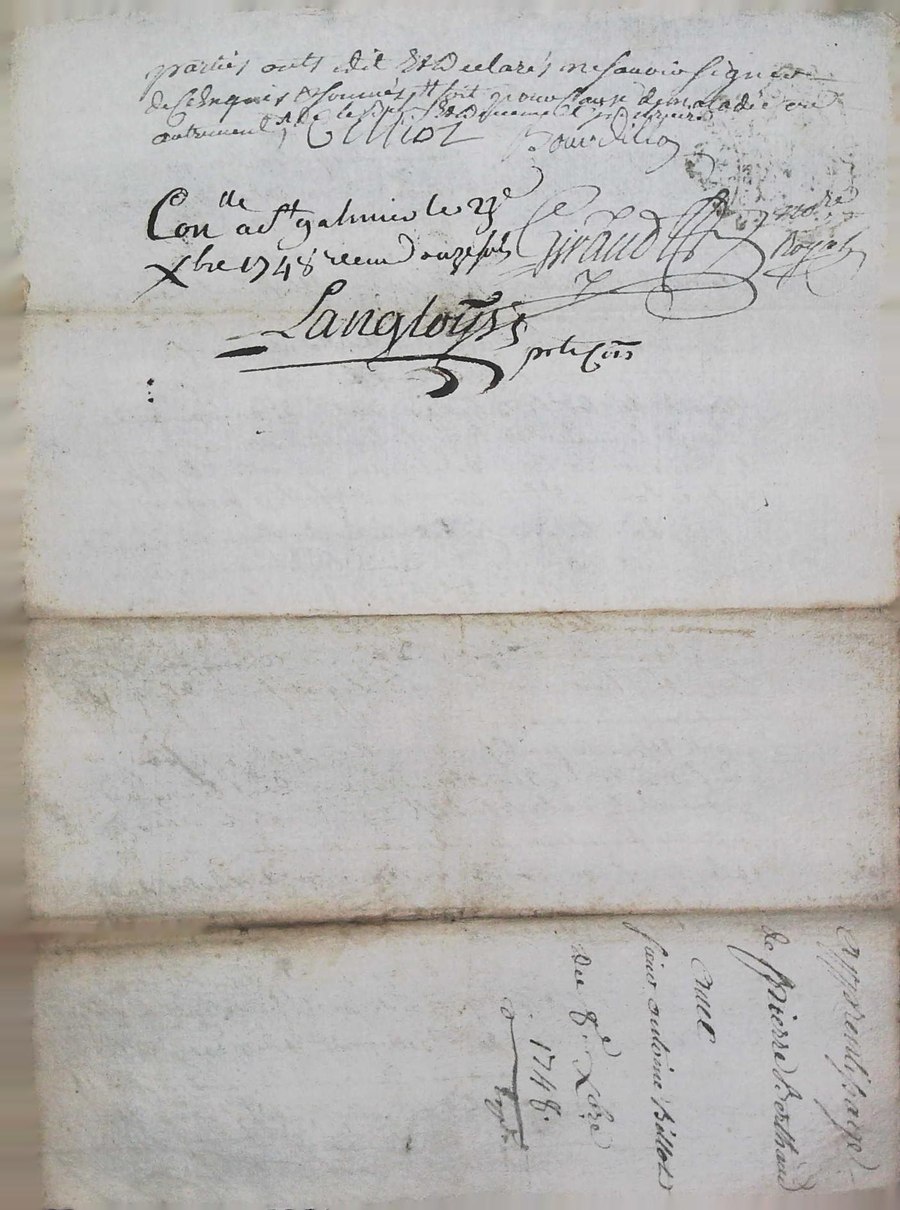 parties onts dit Et Declarés ne savoir signer
de ce Enquis et sommés soit pour cause de maladie ou
autrement
Billiot Bourdillon
Con.lle a St galmier le 23e
Xbre 1748 receu douze sols
Giraud nore
Royal
Langloys
pr le Con
Apprentissage
de pierre Berthaud
avec
sieur antoine Billot
du 8e Xbre
1748